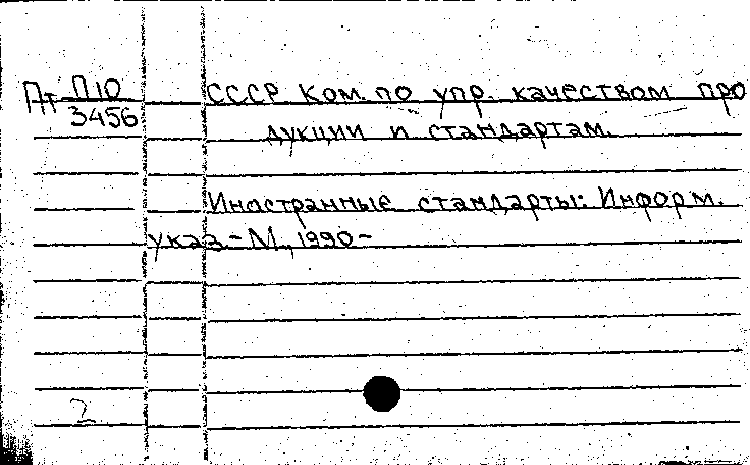 Пт П10 СССР Ком. по упр. качеством про
3456
дукции и стандартам.
Иностранные стандарты: Информ.
указ – М., 1990 –
2